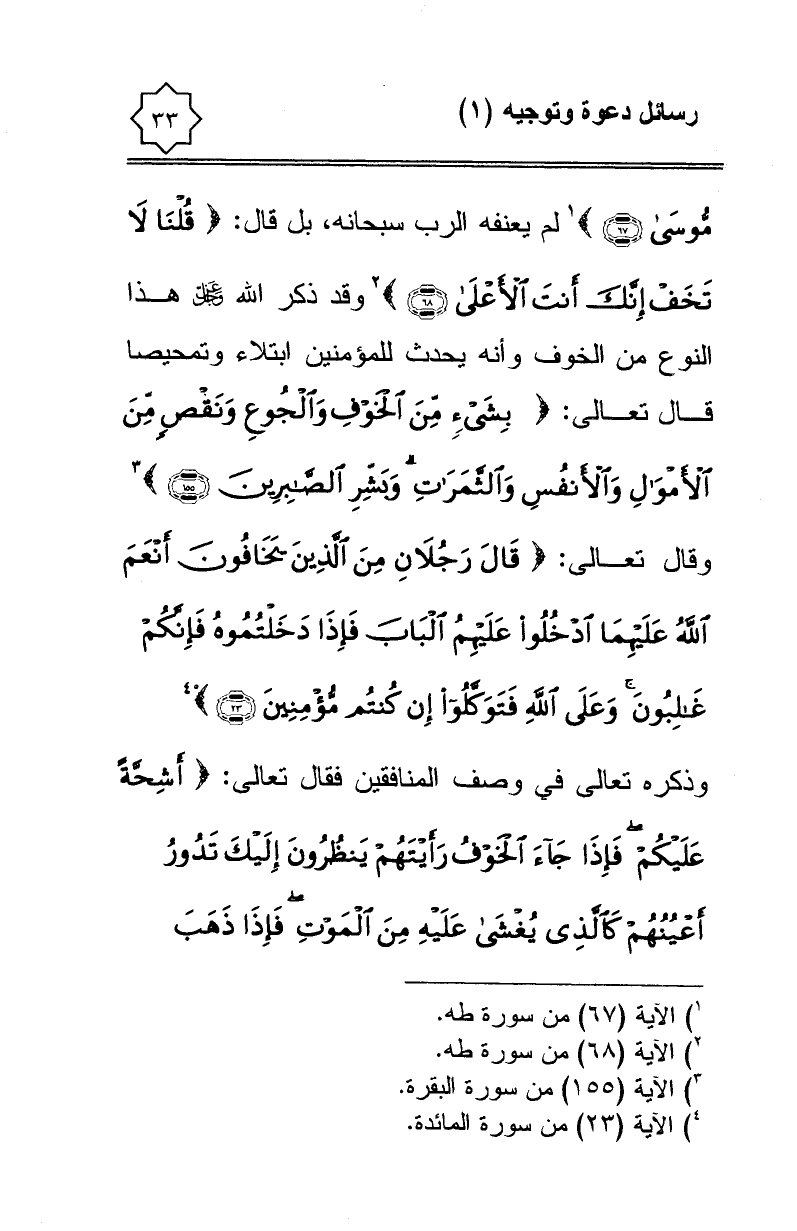 رسائل دعوة وتوجيه (١)
٣٣
مُّوسَىٰ ٦٧ ﴾١ لم يعنفه الرب سبحانه، بل قال: ﴿ قُلْنَا لَا
تَخَفْ إِنَّكَ أَنتَ ٱلْأَعْلَىٰ ٦٨ ﴾٢ وقد ذكر الله ﷿ هـذا
النوع من الخوف وأنه يحدث للمؤمنين ابتلاء وتمحيصا
قـال تعـالى: ﴿ بِشَىْءٍ مِّنَ ٱلْخَوْفِ وَٱلْجُوعِ وَنَقْصٍ مِّنَ
ٱلْأَمْوَٰلِ وَٱلْأَنفُسِ وَٱلثَّمَرَٰتِ ۗ وَبَشِّرِ ٱلصَّٰبِرِينَ ١٥٥ ﴾٣
وقال تعـالى: ﴿ قَالَ رَجُلَانِ مِنَ ٱلَّذِينَ يَخَافُونَ أَنْعَمَ
ٱللَّهُ عَلَيْهِمَا ٱدْخُلُوا۟ عَلَيْهِمُ ٱلْبَابَ فَإِذَا دَخَلْتُمُوهُ فَإِنَّكُمْ
غَٰلِبُونَ ۚ وَعَلَى ٱللَّهِ فَتَوَكَّلُوٓا۟ إِن كُنتُم مُّؤْمِنِينَ ٢٣ ﴾٤
وذكره تعالى في وصف المنافقين فقال تعالى: ﴿ أَشِحَّةً
عَلَيْكُمْ ۖ فَإِذَا جَآءَ ٱلْخَوْفُ رَأَيْتَهُمْ يَنظُرُونَ إِلَيْكَ تَدُورُ
أَعْيُنُهُمْ كَٱلَّذِى يُغْشَىٰ عَلَيْهِ مِنَ ٱلْمَوْتِ ۖ فَإِذَا ذَهَبَ
١) الآية (٦٧) من سورة طه.
٢) الآية (٦٨) من سورة طه.
٣) الآية (١٥٥) من سورة البقرة.
٤) الآية (٢٣) من سورة المائدة.